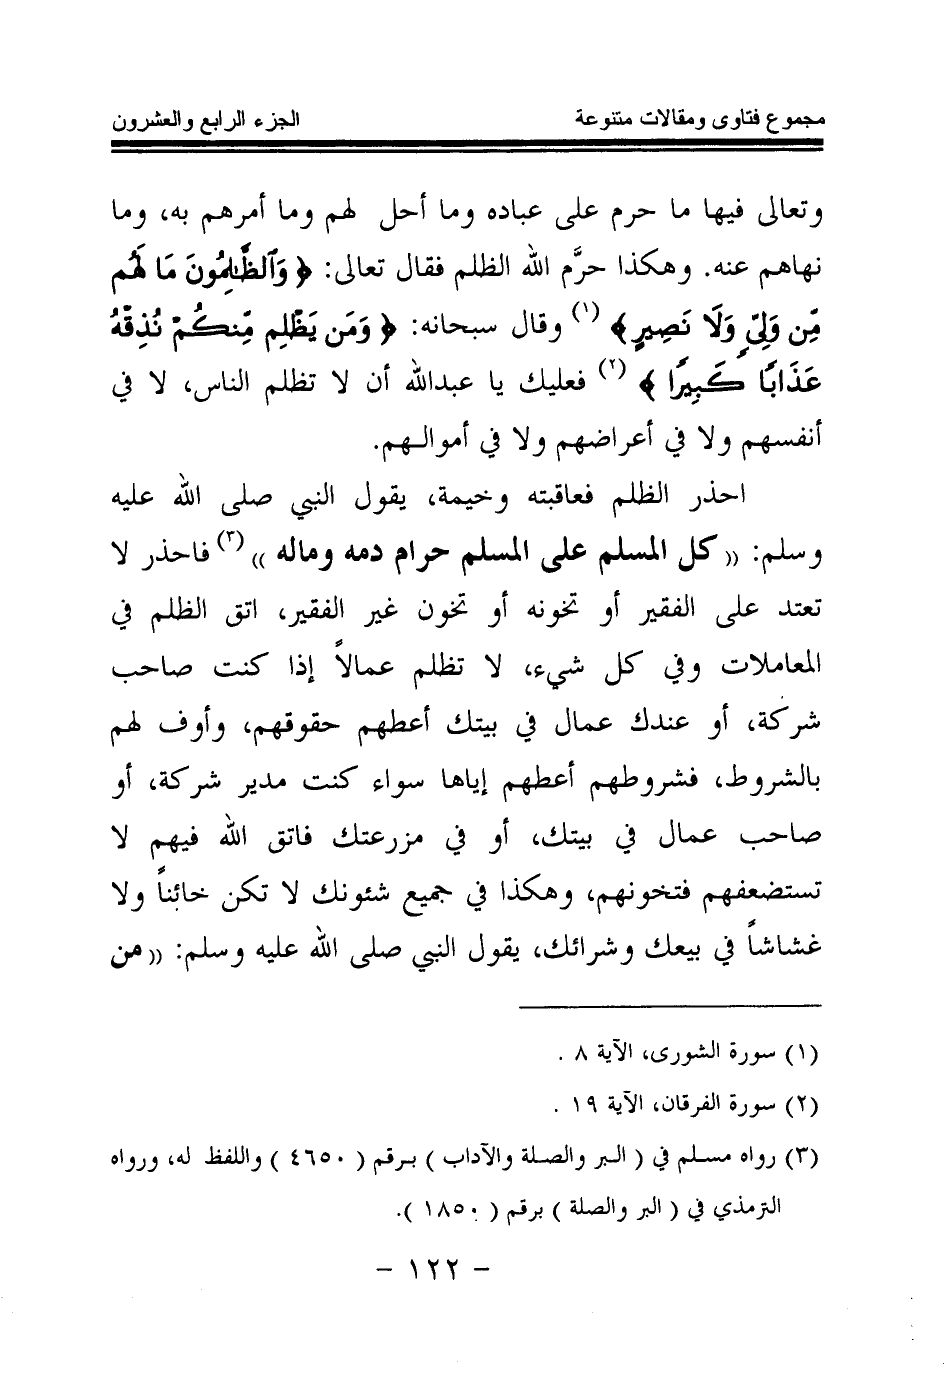 مجموع فتاوى ومقالات متنوعة الجزء الرابع والعشرون
وتعالى فيها ما حرم على عباده وما أحل لهم وما أمرهم به، وما
نهاهم عنه. وهكذا حرَّم الله الظلم فقال تعالى: ﴿ وَٱلظَّـٰلِمُونَ مَا لَهُم
مِّن وَلِيٍّ وَلَا نَصِيرٍ ﴾ (١) وقال سبحانه: ﴿ وَمَن يَظْلِم مِّنكُمْ نُذِقْهُ
عَذَابًا كَبِيرًا ﴾ (٢) فعليك يا عبدالله أن لا تظلم الناس، لا في
أنفسهم ولا في أعراضهم ولا في أموالـهم.
احذر الظلم فعاقبته وخيمة، يقول النبي صلى الله عليه
وسلم: (( كل المسلم على المسلم حرام دمه وماله )) (٣) فاحذر لا
تعتد على الفقير أو تخونه أو تخون غير الفقير، اتق الظلم في
المعاملات وفي كل شيء، لا تظلم عمالاً إذا كنت صاحب
شركة، أو عندك عمال في بيتك أعطهم حقوقهم، وأوف لهم
بالشروط، فشروطهم أعطهم إياها سواء كنت مدير شركة، أو
صاحب عمال في بيتك، أو في مزرعتك فاتق الله فيهم لا
تستضعفهم فتخونهم، وهكذا في جميع شئونك لا تكن خائناً ولا
غشاشاً في بيعك وشرائك، يقول النبي صلى الله عليه وسلم: (( من
(١) سورة الشورى، الآية ٨ .
(٢) سورة الفرقان، الآية ١٩ .
(٣) رواه مسلم في ( البر والصلة والآداب ) برقم ( ٤٦٥٠ ) واللفظ له، ورواه
الترمذي في ( البر والصلة ) برقم ( ١٨٥٠ ).
- ١٢٢ -